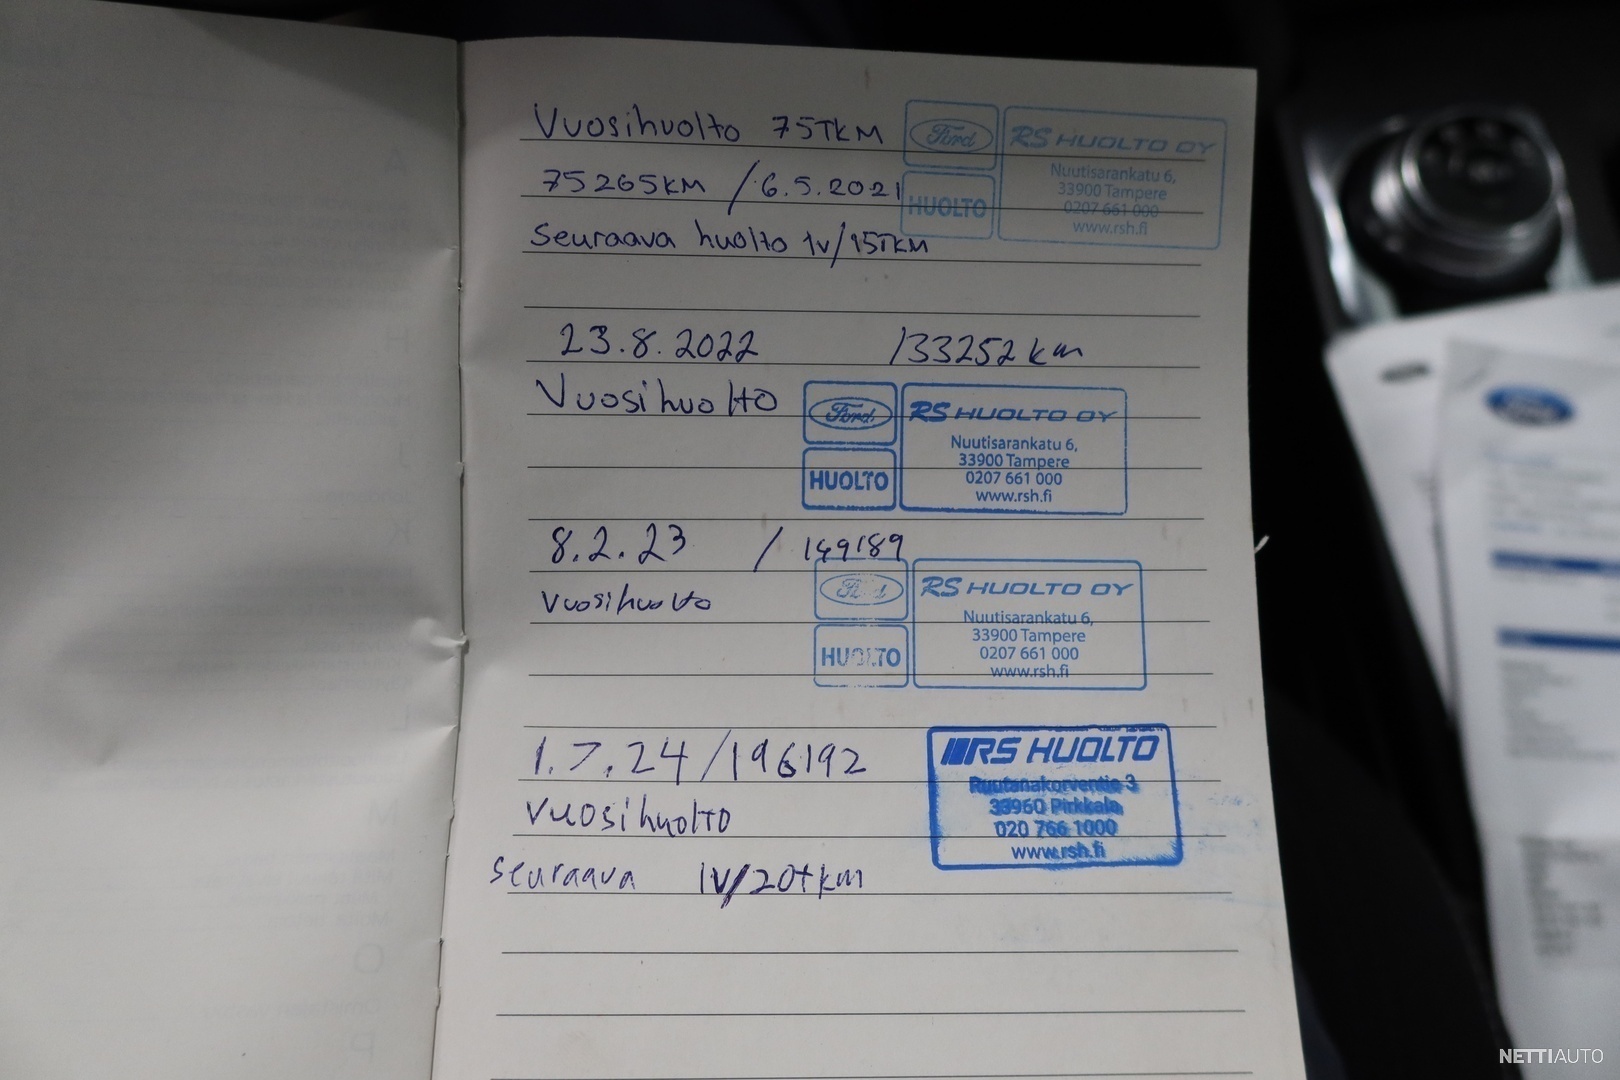 Vuosihuolto 75TKM
75265KM / 6.5.2021
Seuraava huolto 1v/15TKM
Ford
HUOLTO
RS HUOLTO OY
Nuutisarankatu 6,
33900 Tampere
0207 661 000
www.rsh.fi
23.8.2022 133252 km
Vuosihuolto
Ford
HUOLTO
RS HUOLTO OY
Nuutisarankatu 6,
33900 Tampere
0207 661 000
www.rsh.fi
8.2.23 / 149189
Vuosihuolto
Ford
HUOLTO
RS HUOLTO OY
Nuutisarankatu 6,
33900 Tampere
0207 661 000
www.rsh.fi
1.7.24/196192
Vuosihuolto
seuraava 1v/20tkm
RS HUOLTO
Ruutanakorventie 3
33960 Pirkkala
020 766 1000
www.rsh.fi
Ford
NETTIAUTO